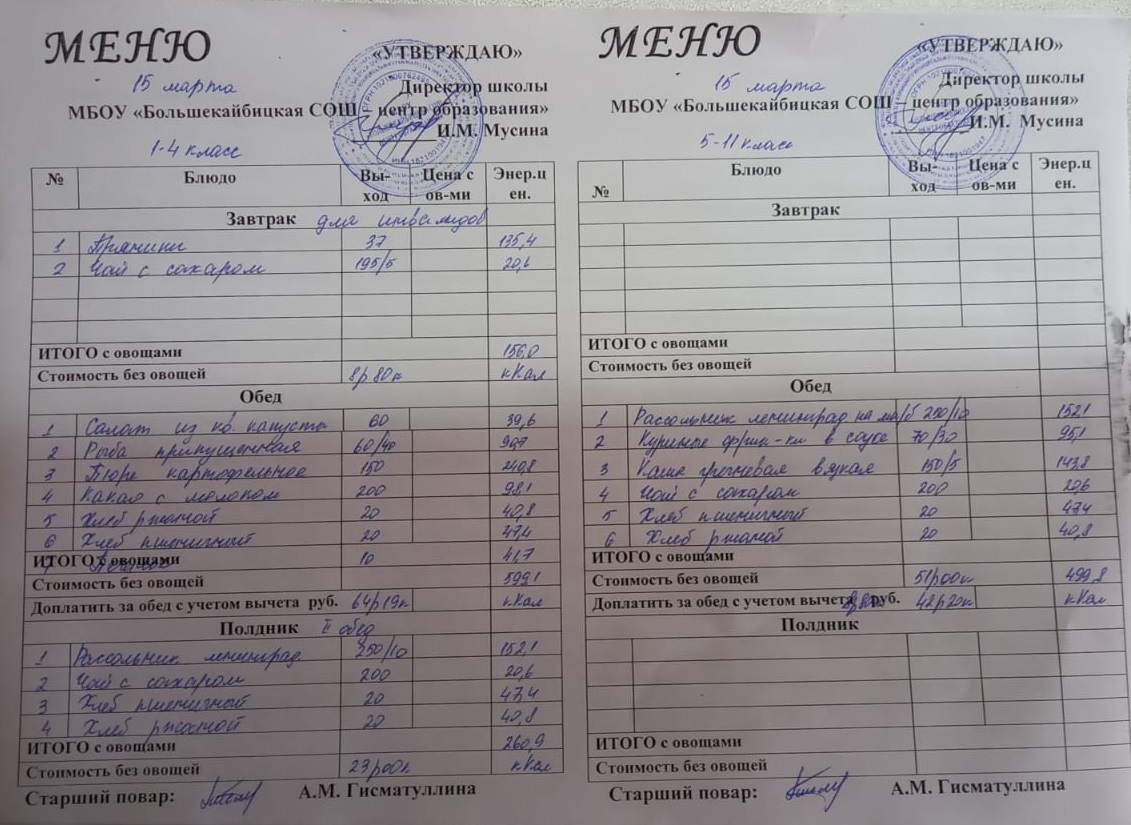 МЕНЮ
«УТВЕРЖДАЮ»
15 марта
Директор школы
МБОУ «Большекайбицкая СОШ – центр образования»
И.М. Мусина
1-4 класс
№ Блюдо Вы-ход Цена с ов-ми Энер.ц ен.
Завтрак для инвалидов
1 Пряники 37 135,4
2 Чай с сахаром 195/5 20,6
ИТОГО с овощами 156,0
Стоимость без овощей 8р 80к кКал
Обед
1 Салат из кв. капусты 60 39,6
2 Рыба припущенная 60/40
3 Пюре картофельное 150 240,8
4 Какао с молоком 200 98,1
5 Хлеб ржаной 20 40,8
6 Хлеб пшеничный 20 47,4
ИТОГО с овощами 10 41,7
Стоимость без овощей 599,1
Доплатить за обед с учетом вычета руб. 64р19к кКал
Полдник II обед
1 Рассольник ленинград. 250/10 152,1
2 Чай с сахаром 200 20,6
3 Хлеб пшеничный 20 47,4
4 Хлеб ржаной 20 40,8
ИТОГО с овощами 260,9
Стоимость без овощей 23р00к кКал
Старший повар: А.М. Гисматуллина
МЕНЮ
«УТВЕРЖДАЮ»
15 марта
Директор школы
МБОУ «Большекайбицкая СОШ – центр образования»
И.М. Мусина
5-11 класс
№ Блюдо Вы-ход Цена с ов-ми Энер.ц ен.
Завтрак
ИТОГО с овощами
Стоимость без овощей
Обед
1 Рассольник ленинград на м/б 250/10 152,1
2 Куриные фрик-ки в соусе 70/30 95,1
3 Каша гречневая вязкая 150/5 143,8
4 Чай с сахаром 200 20,6
5 Хлеб пшеничный 20 47,4
6 Хлеб ржаной 20 40,8
ИТОГО с овощами
Стоимость без овощей 51р00к 499,8
Доплатить за обед с учетом вычета руб. 42р20к кКал
Полдник
ИТОГО с овощами
Стоимость без овощей
Старший повар: А.М. Гисматуллина